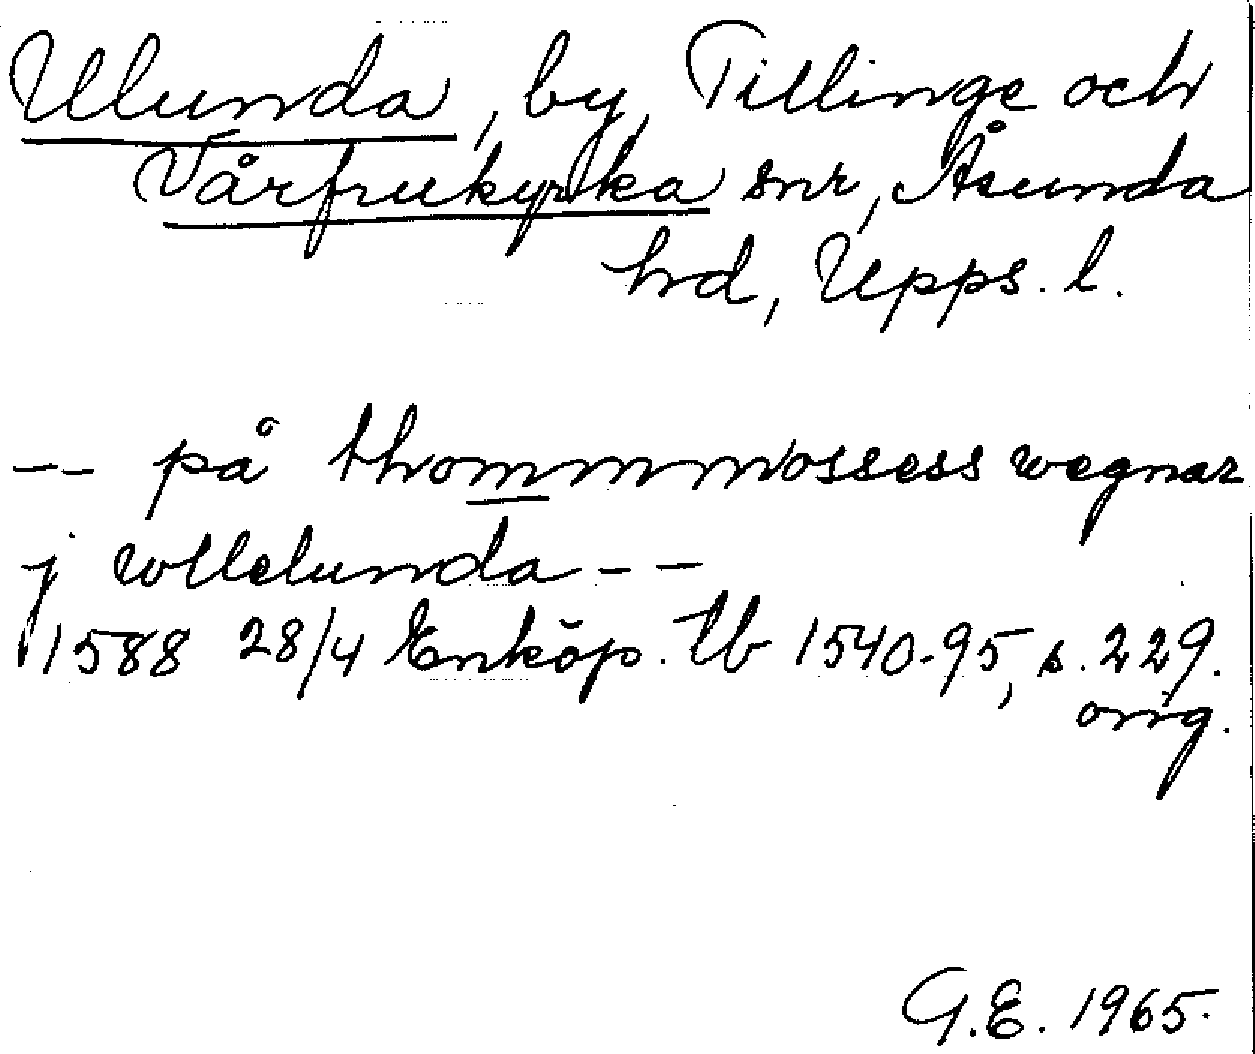 Ulunda, by, Tillinge och
Vårfrukyrka snr, Åsunda
hd, Upps. l.
-- på thommmossess wegnar
j wllelunda --
1588 28/4 Enköp. tb 1540-95, s. 229.
orig.
G.E. 1965.